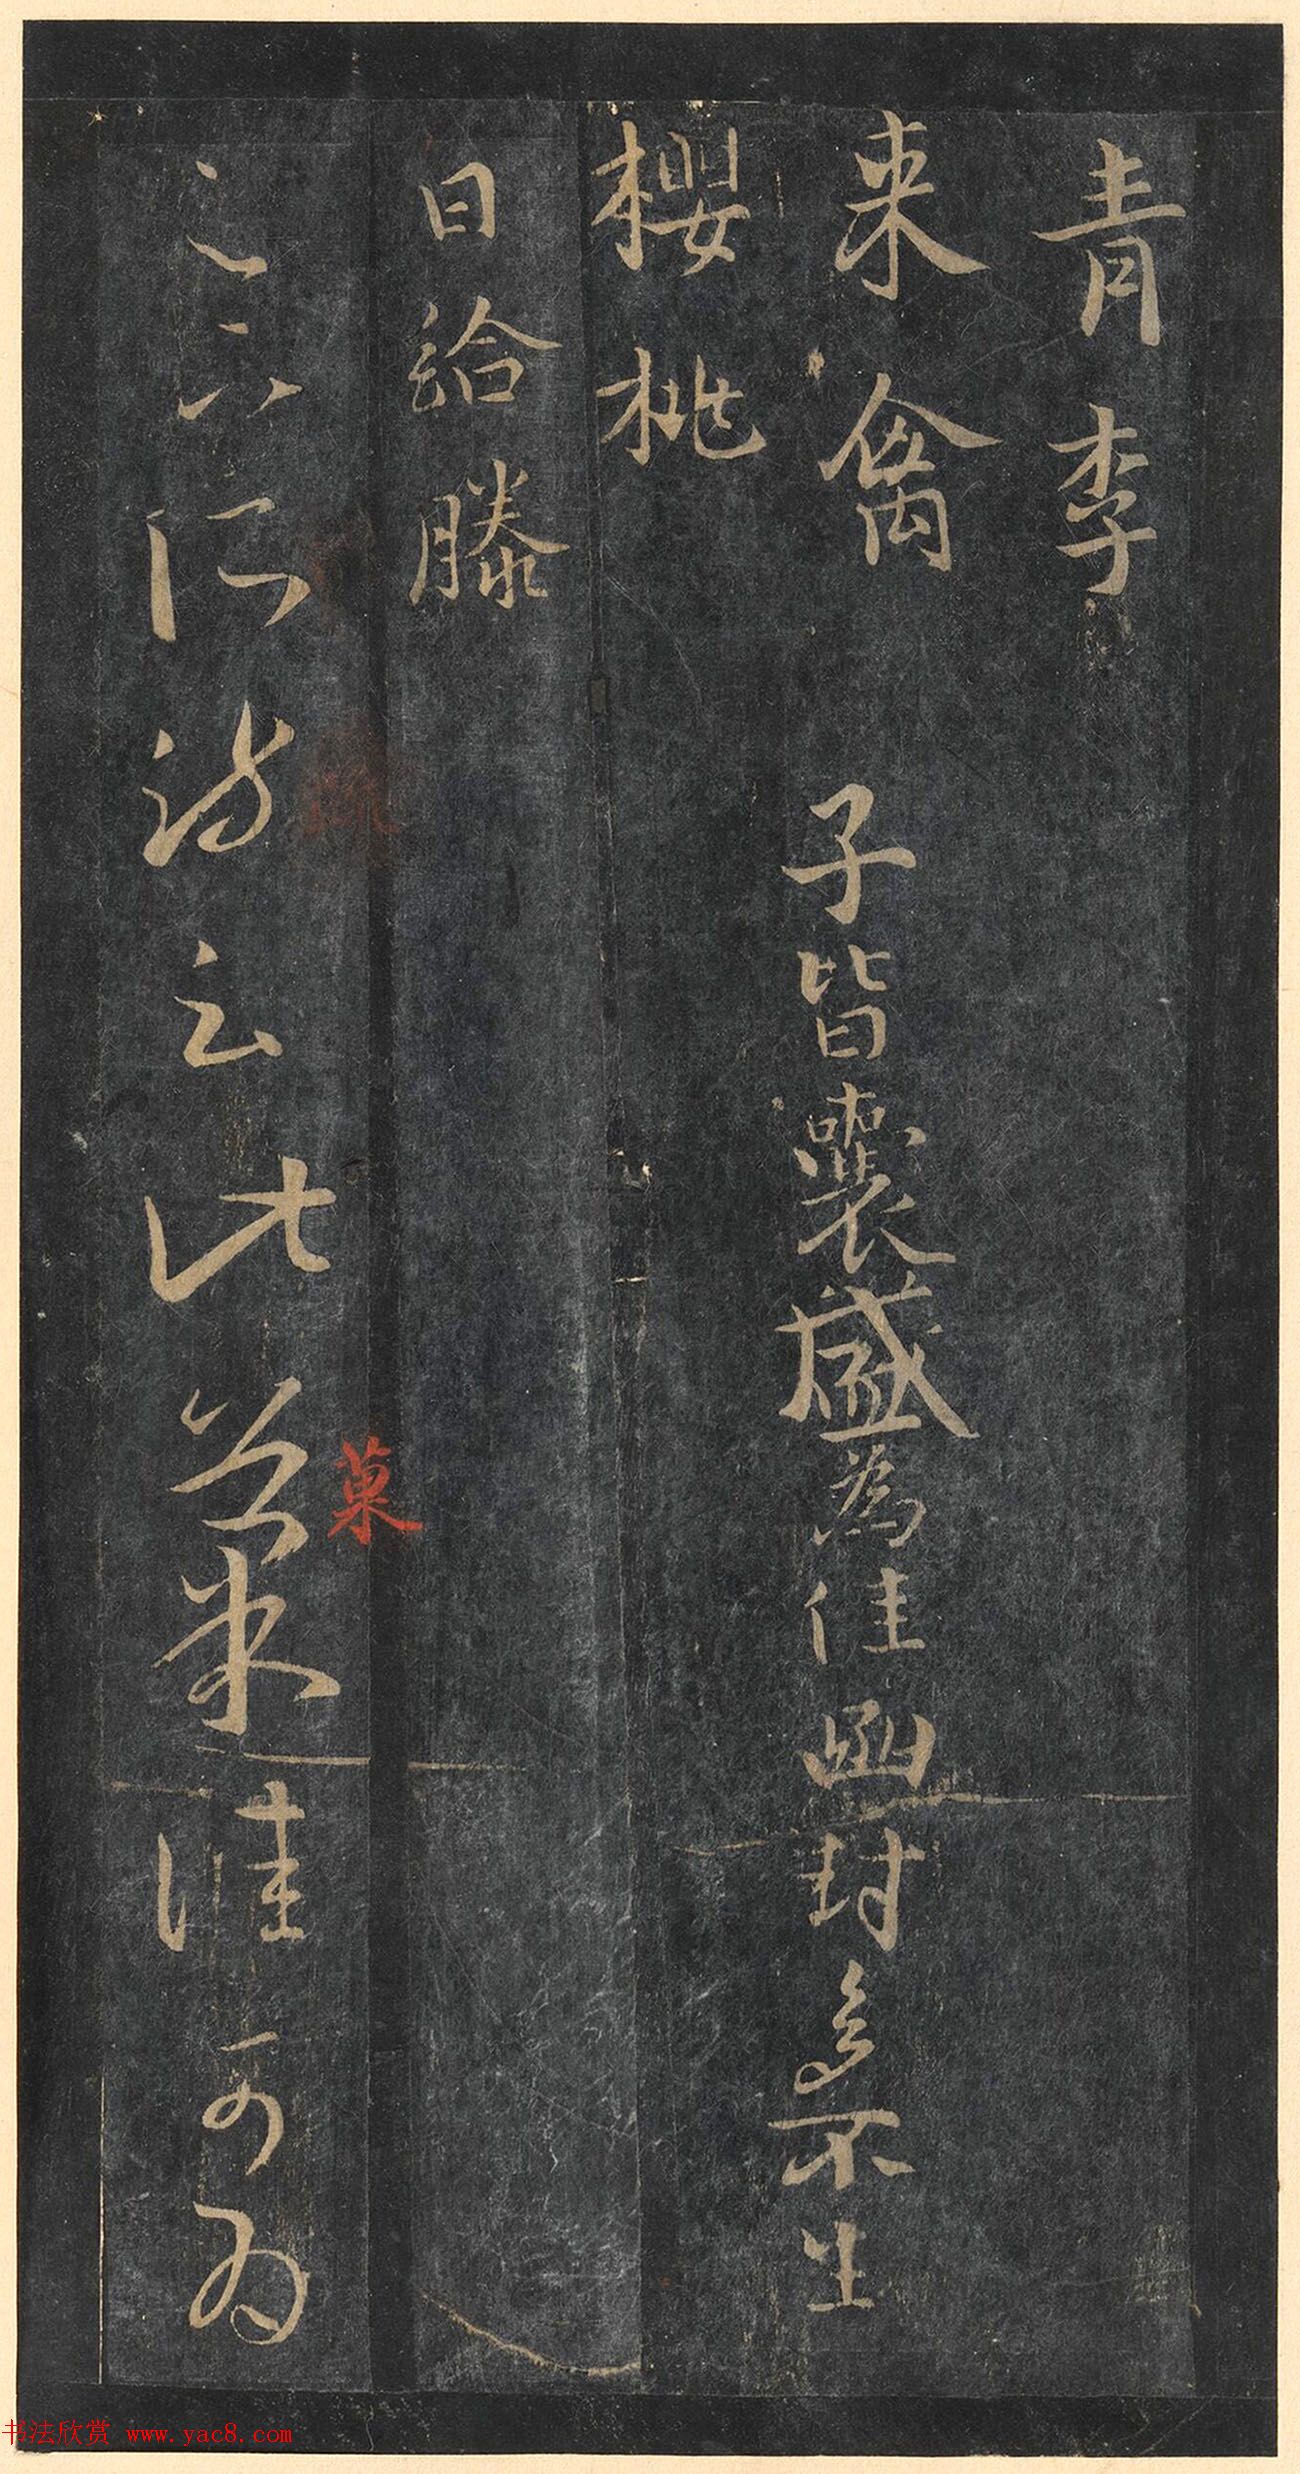 青李
来禽
子皆囊盛為佳函封多不生
櫻桃
日給滕
足下所疏云此菓佳可為
菓
书法欣赏 www.yac8.com